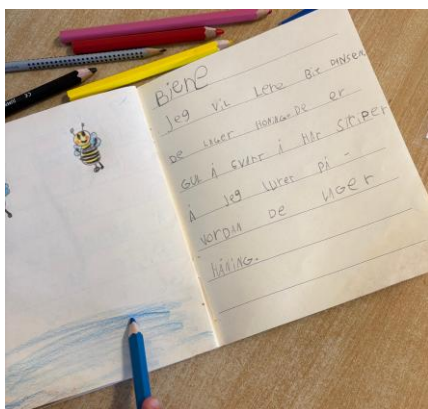 BiENe
Jeg ViL Lære Bie DANSEN
De LAGER HONING. De er
GUL Å SVART Å HAR StRiPER
Å Jeg LURER PÅ -
VORDAN De LAGER
HÅNING.